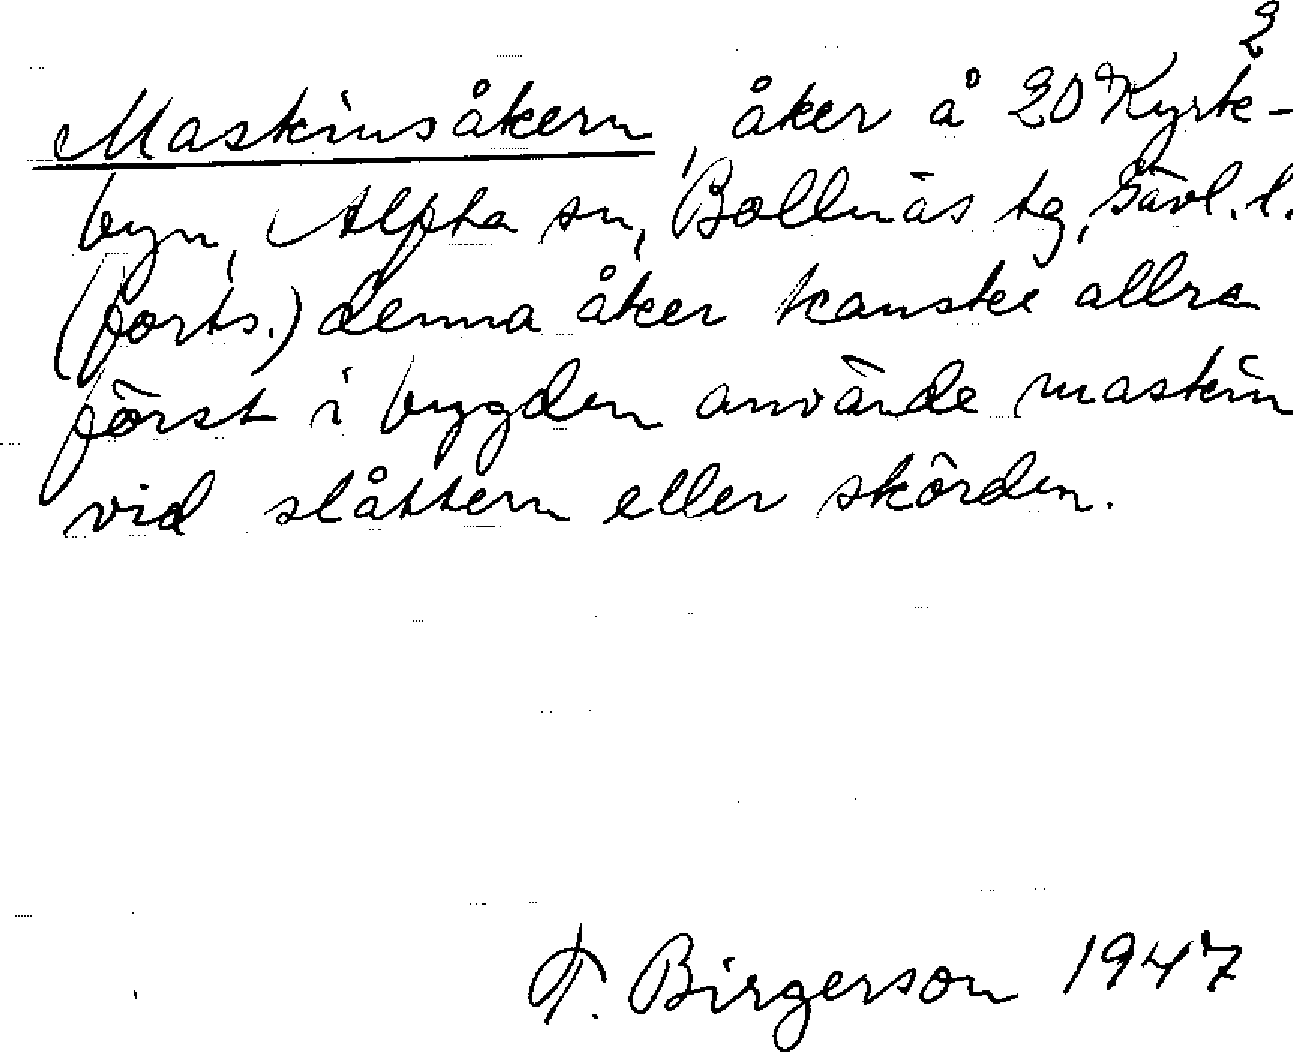 2
Maskinsåkern, åker å 20 Kyrk-
byn, Alfta sn, Bollnäs tg, Gävl. l.
(forts.) denna åker kanske allra
först i bygden använde maskin
vid slåttern eller skörden.
F. Birgerson 1947